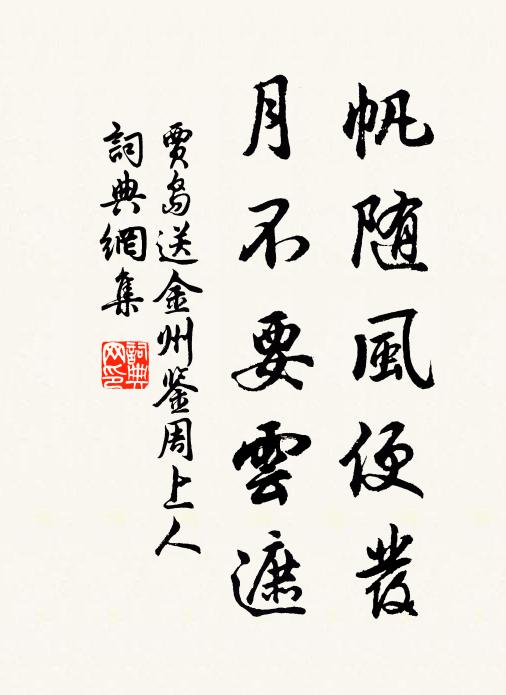 帆随風便發
月不要雲遮
賈島送金州鉴周上人
詞典網集
詞典网印